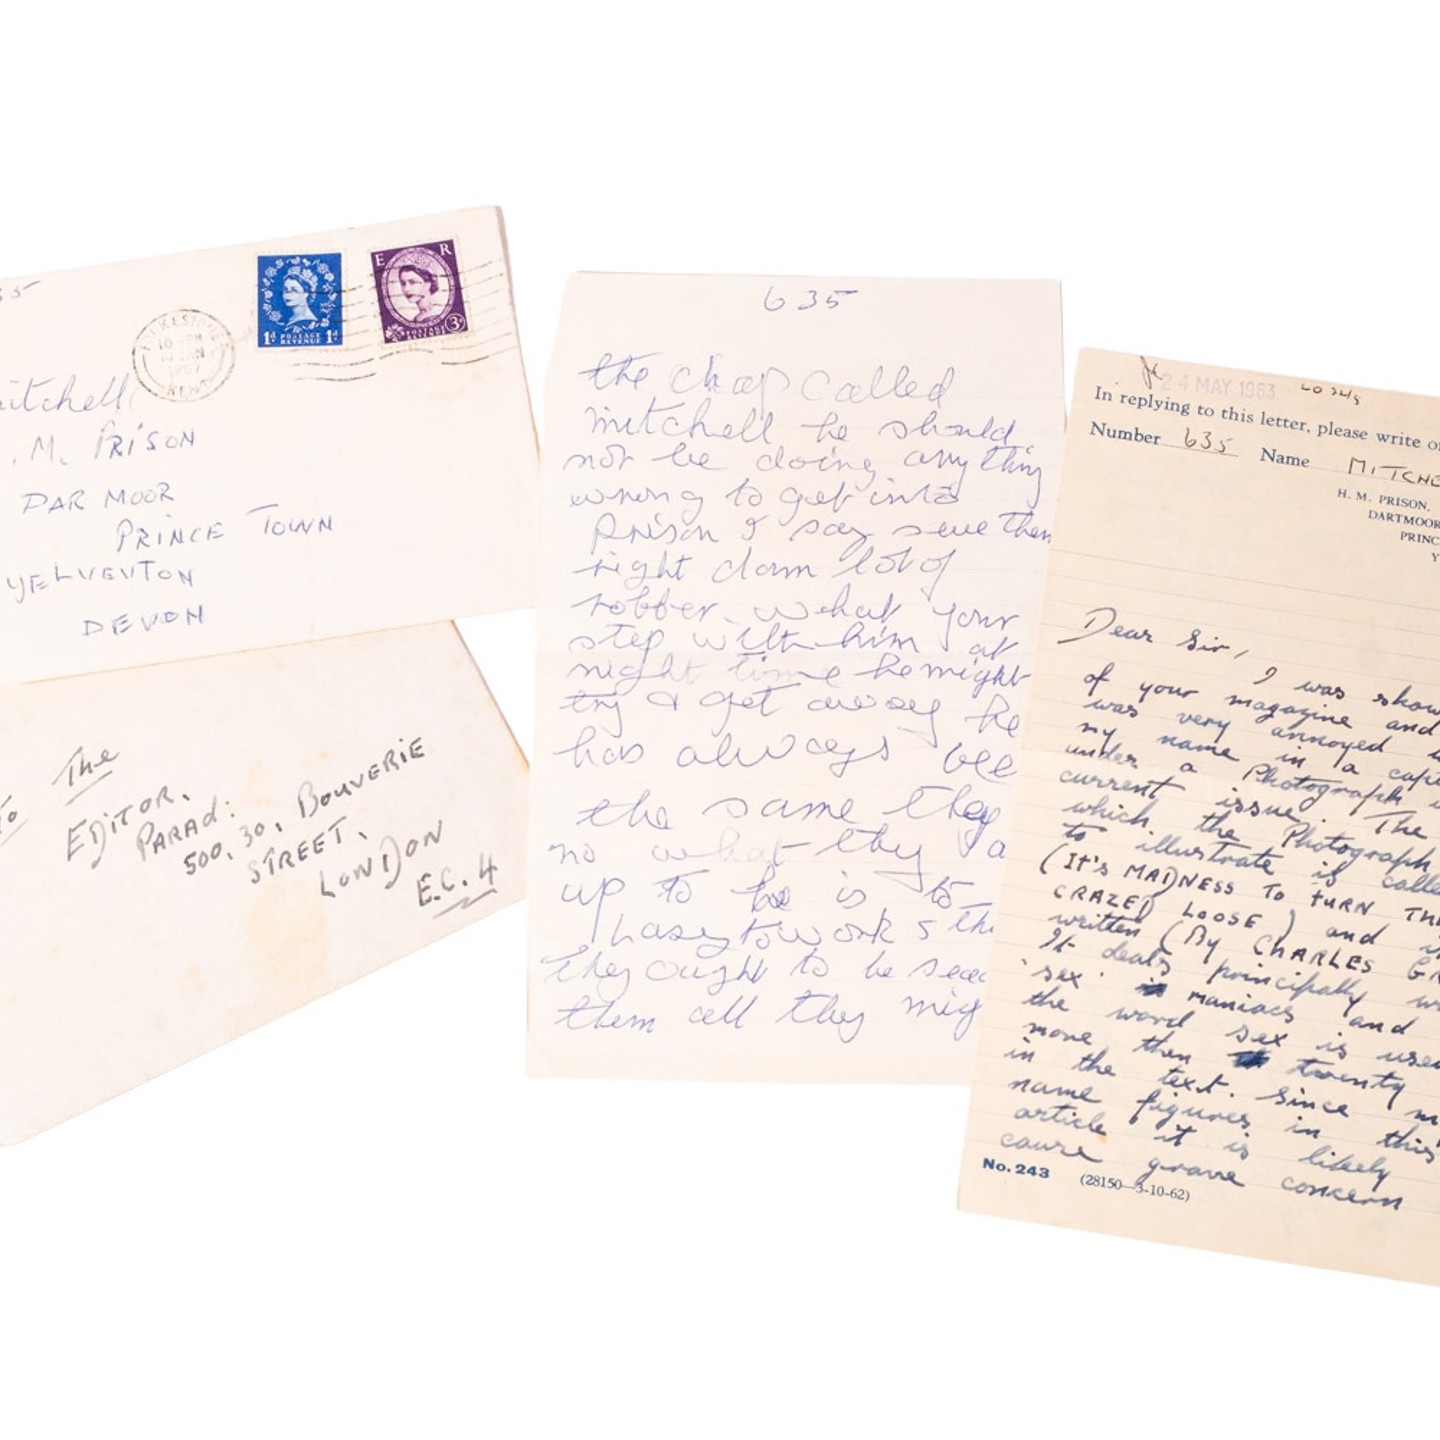 35
mitchell
. M. PRISON
DARMOOR
PRINCE TOWN
YELVEVTON
DEVON
FOLKESTONE
10 - PM
10 JAN
1967
KENT
1d POSTAGE REVENUE 1d
E R
POSTAGE REVENUE 3d
To The
EDITOR.
PARAD:
500, 30, BOUVERIE
STREET,
LONDON
E.C. 4
635
the chap called
mitchell he should
not be doing anything
wrong to get into
Prison I say seve them
right dam lot of
robber. what your
step with him at
night time he might
try & get away he
has always bee
the same they
no what they a
up to he is to
Lasy to work s the
they ought to be
them all they mig
24 MAY 1963
In replying to this letter, please write o
Number 635 Name MITCHE
H. M. PRISON,
DARTMOOR
PRINC
Y
Dear Sir, I was show
of your magazine and
was very annoyed
my name in a capt
under a Photograph
current issue. The
which the Photograph
to illustrate is calle
(IT'S MADNESS TO TURN THE
CRAZED LOOSE) and is
written (By CHARLES GR
It deals principally w
'sex' maniacs and
the word sex is used
more then twenty
in the text. Since m
name figures in this
article it is likely
cause grave concern
No. 243 (28150—3-10-62)